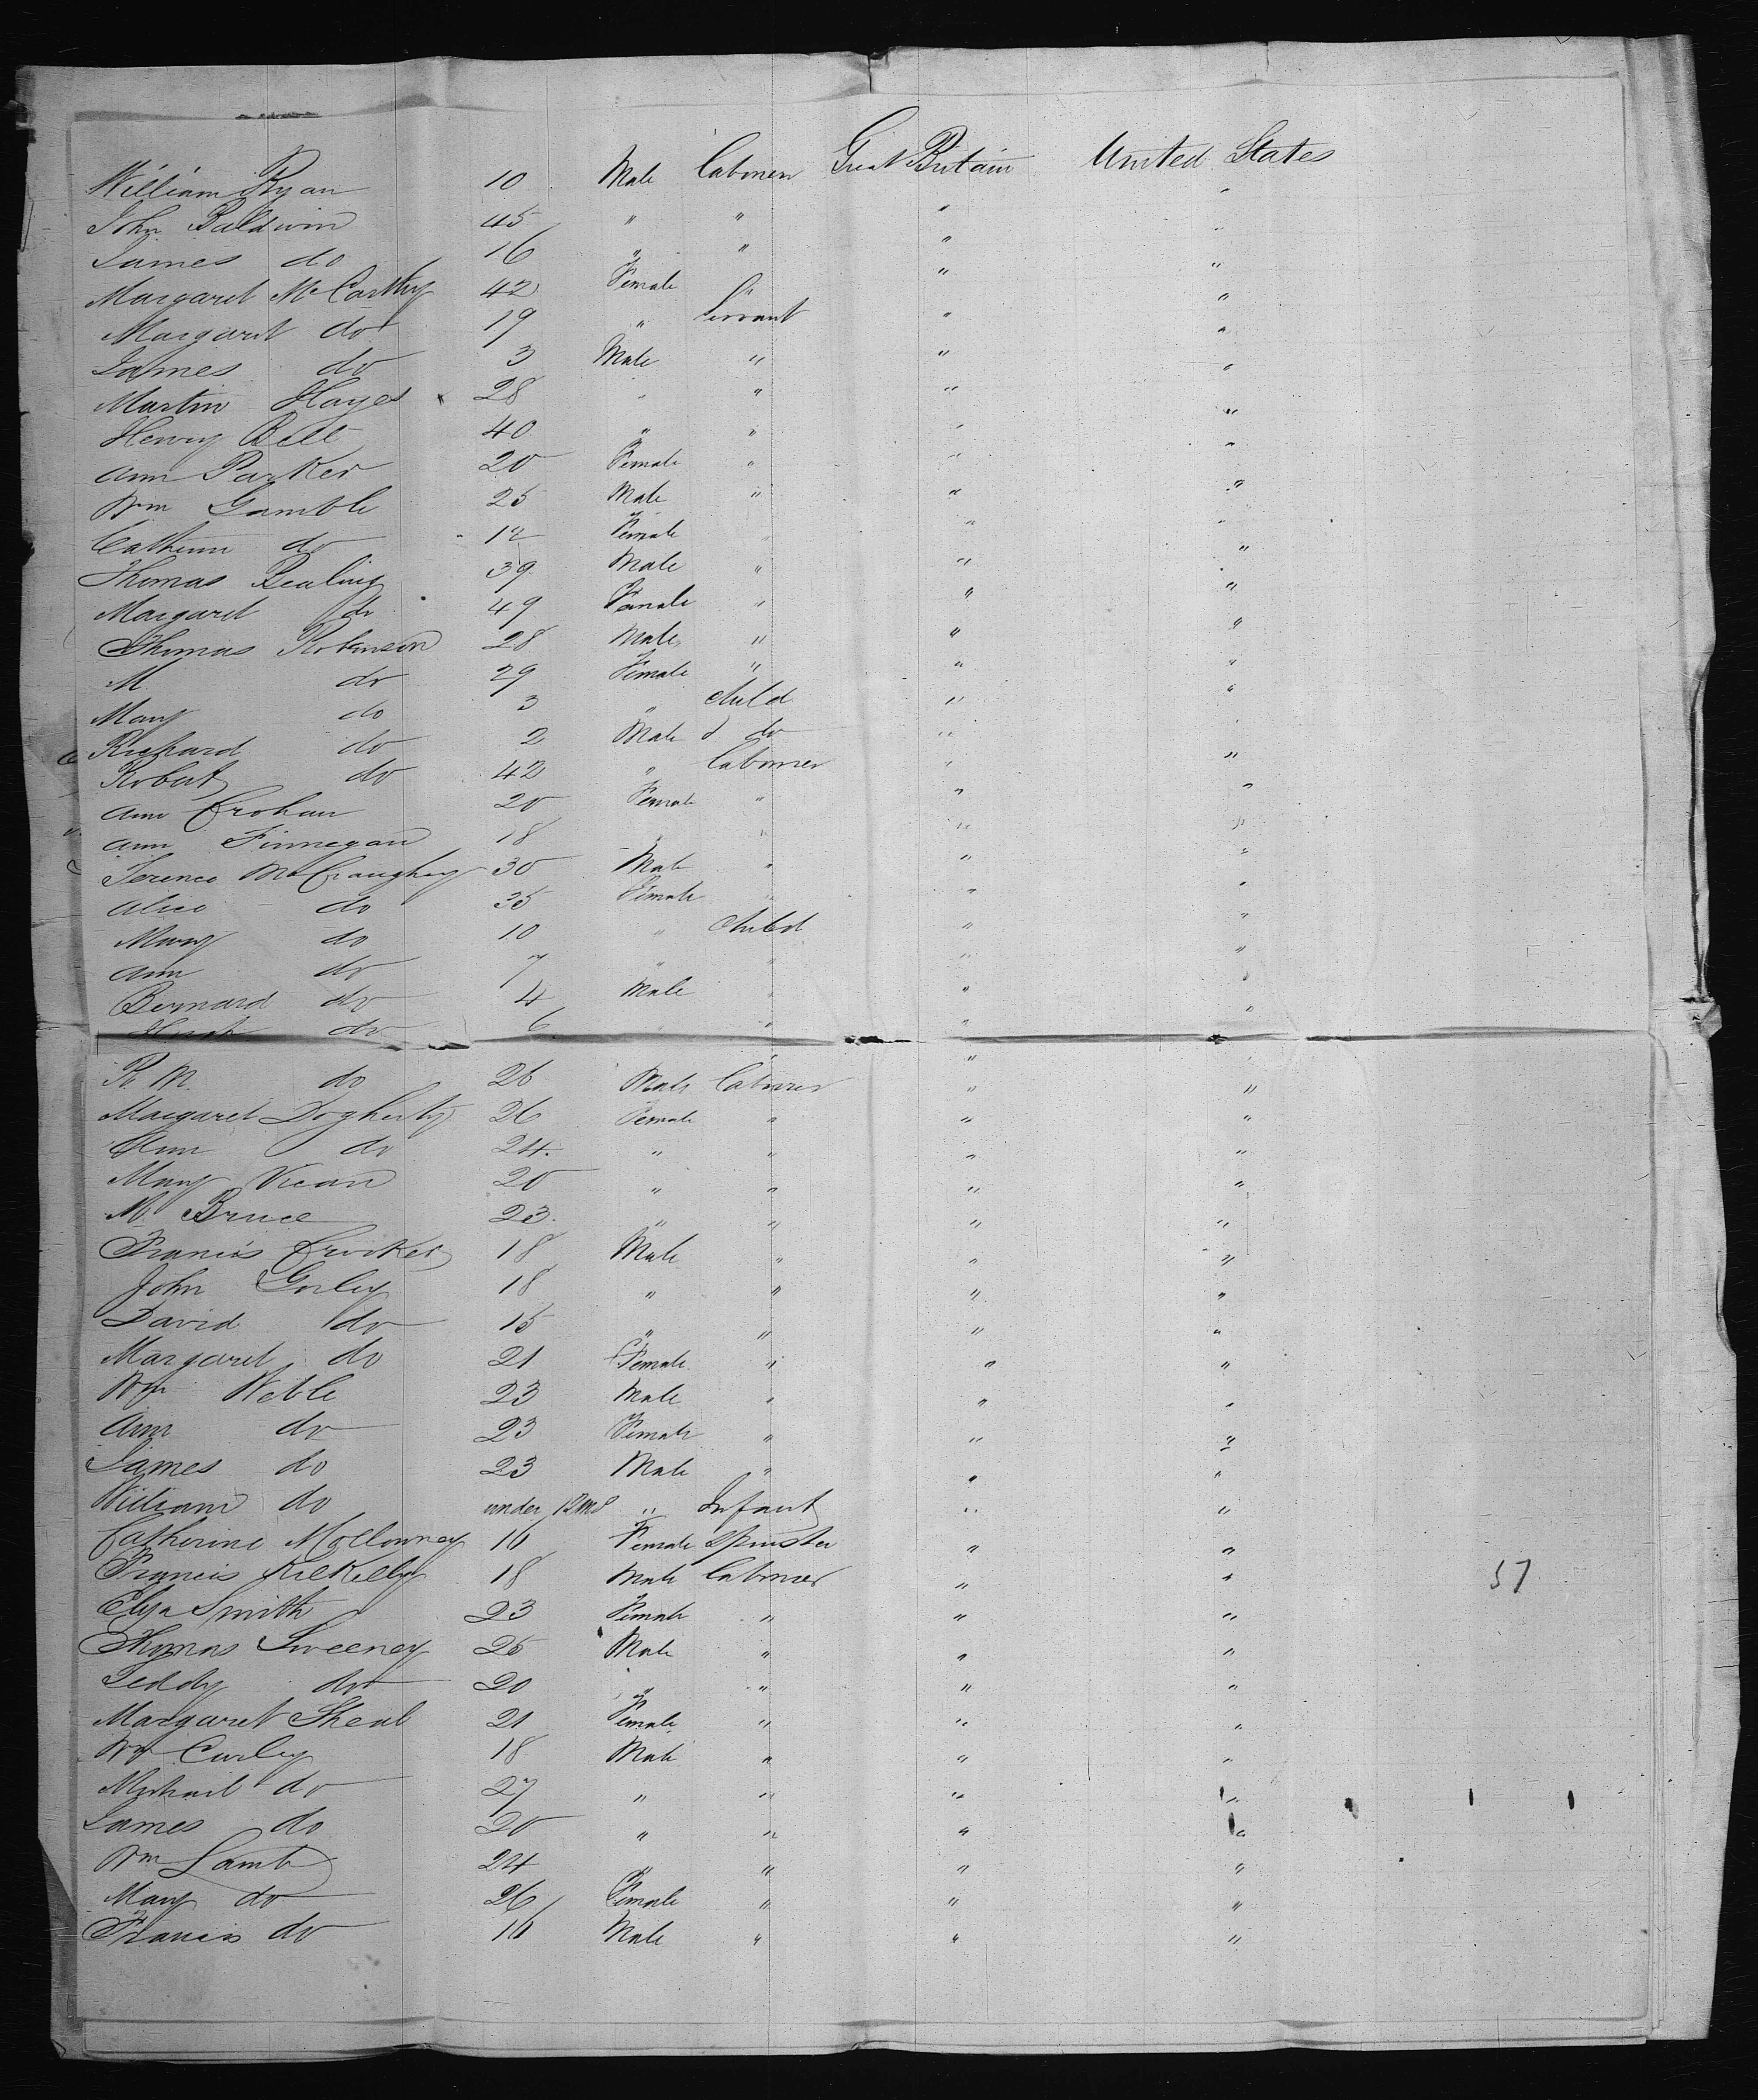 William Ryan 10 Male Laborer Great Britain United States
John Baldwin 45 " " " "
James do 16 " " " "
Margaret McCarthy 42 Female " " "
Margaret do 19 " Servant " "
James do 3 Male " " "
Martin Hayes 28 " " " "
Henry Bell 40 " " " "
Ann Parker 20 Female " " "
Wm Gamble 25 Male " " "
Catherine do Female " " "
Thomas 39 Male " " "
Margaret do 49 Female " " "
Thomas Robinson 28 Male " " "
M do 29 Female " " "
Mary do 3 " Child " "
Richard do 2 Male do " "
Robert do 42 " Laborer " "
Ann Crohan 20 Female " " "
Ann Finnegan 18 " " " "
Terence 30 Male " " "
Alice do 35 Female " " "
Mary do 10 " Child " "
Ann do 7 " " " "
Bernard do 4 Male " " "
Hugh do 6 " " " "
R M do 26 Male Laborer " "
Margaret Dogherty 26 Female " " "
Ann do 24 " " " "
Mary 20 " " " "
M Bruce 23 " " " "
Francis Crooker 18 Male " " "
John Gorley 18 " " " "
David do 15 " " " "
Margaret do 21 Female " " "
Wm Weble 23 Male " " "
Ann do 23 Female " " "
James do 23 Male " " "
William do under 12 ms " Infant " "
Catherine Mollowney 16 Female Spinster " "
Francis Kilkelly 18 Male Laborer " " 57
Eliza Smith 23 Female " " "
Thomas Sweeney 25 Male " " "
Teddy do 20 " " " "
Margaret Sheal 21 Female " " "
Wm Curley 18 Male " " "
Michail do 27 " " " "
James do 20 " " " "
Wm Lamb 24 " " " "
Mary do 26 Female " " "
Francis do 16 Male " " "